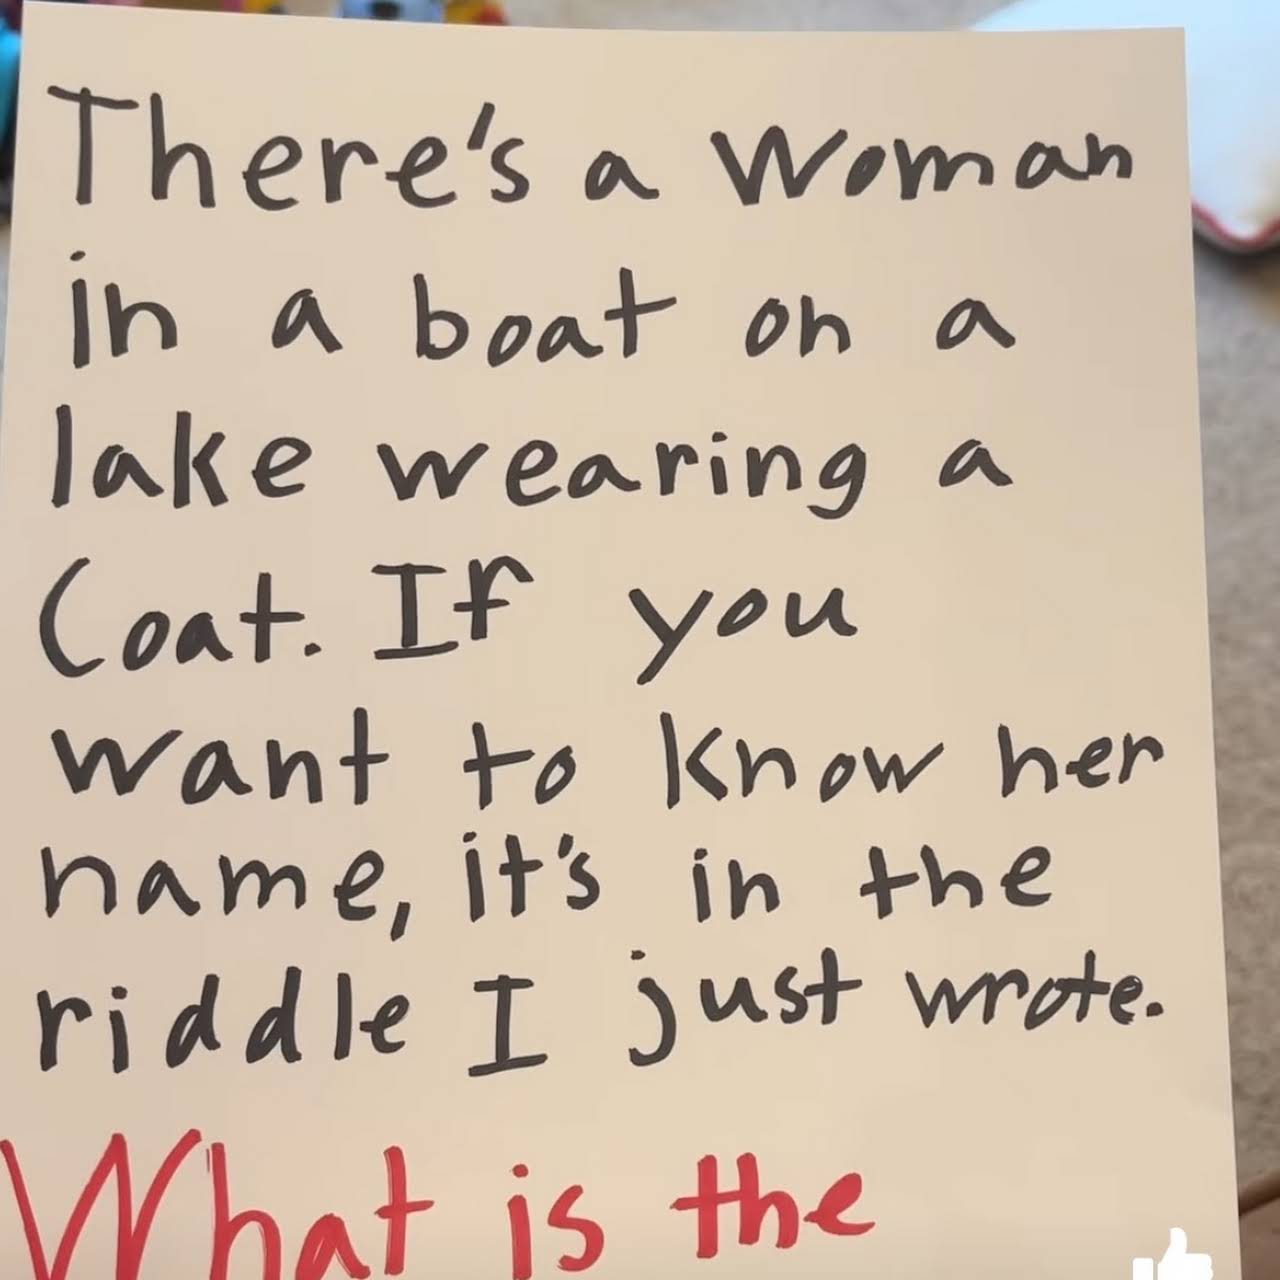 There's a Woman
in a boat on a
lake wearing a
Coat. If you
want to know her
name, it's in the
riddle I just wrote.
What is the